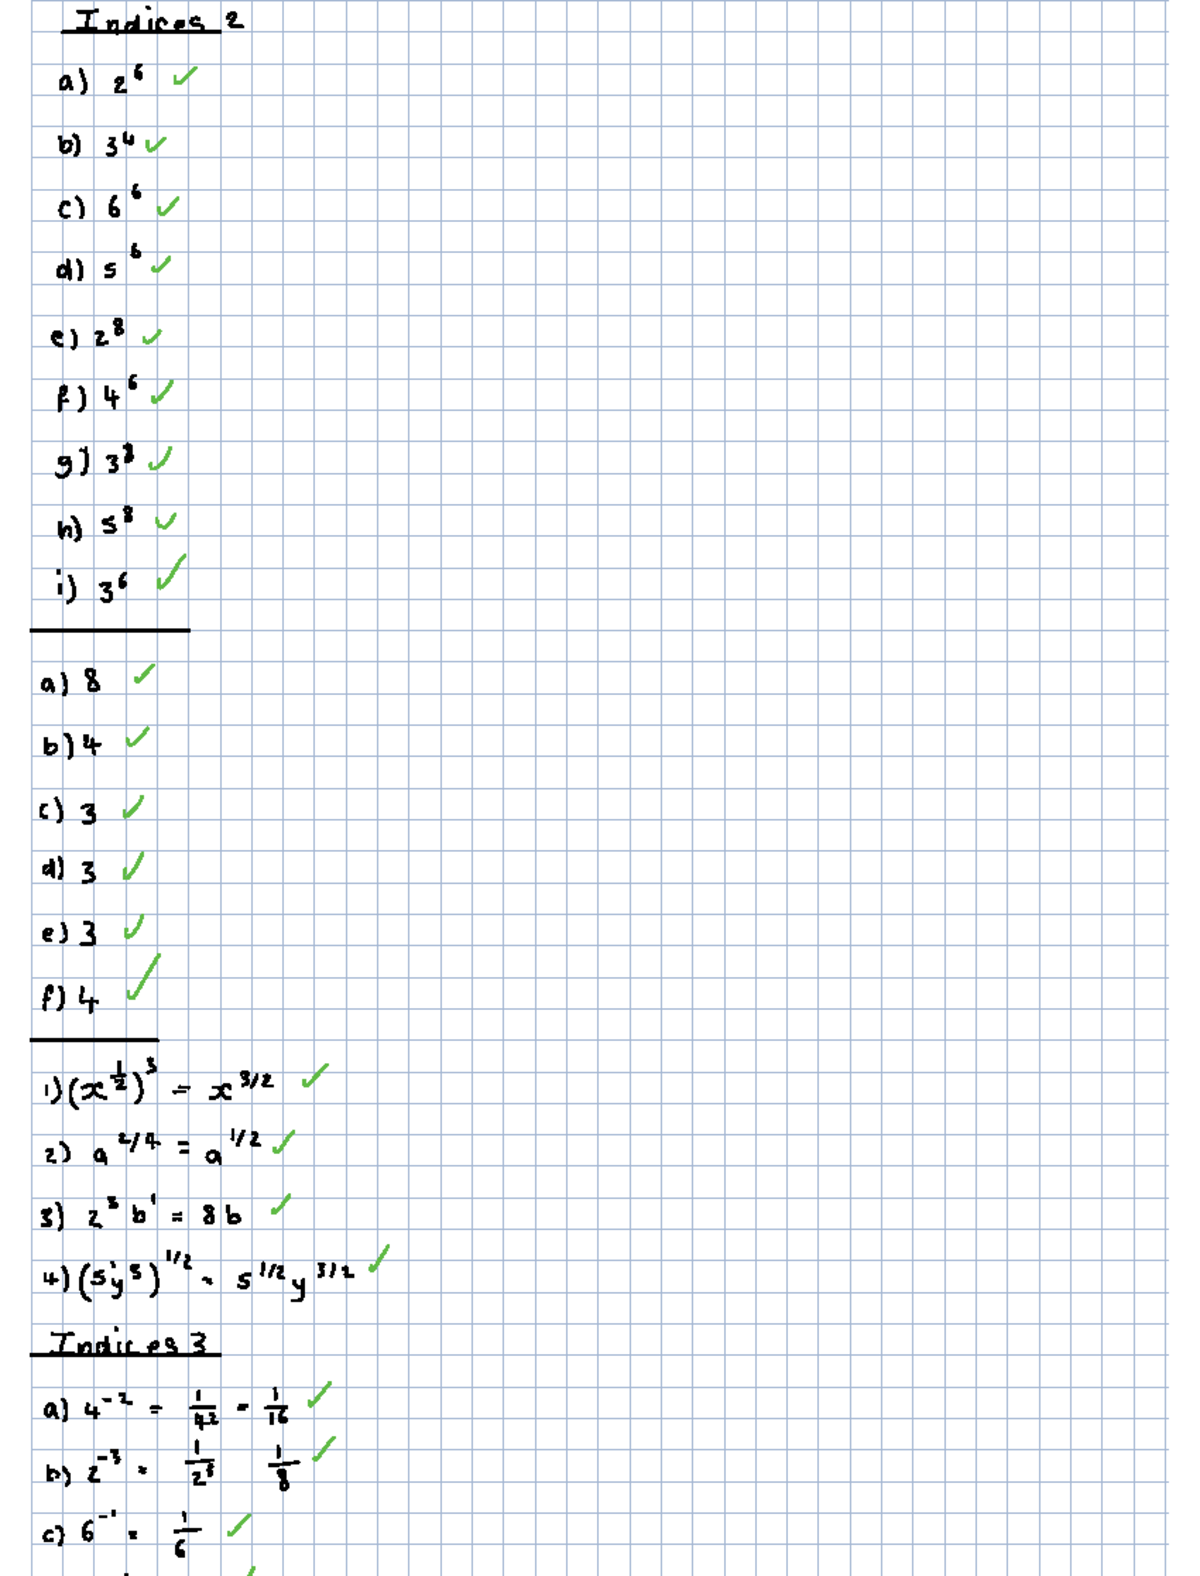 Indices 2
a) 2^6 ✓
b) 3^4 ✓
c) 6^6 ✓
d) 5^6 ✓
e) 2^8 ✓
f) 4^6 ✓
g) 3^8 ✓
h) 5^8 ✓
i) 3^6 ✓
a) 8 ✓
b) 4 ✓
c) 3 ✓
d) 3 ✓
e) 3 ✓
f) 4 ✓
1) (x^1/2)^3 = x^3/2 ✓
2) a^2/4 = a^1/2 ✓
3) 2^3 b^1 = 8b ✓
4) (5^1 y^3)^1/2 = 5^1/2 y^3/2 ✓
Indices 3
a) 4^-2 = 1/4^2 = 1/16 ✓
b) 2^-3 = 1/2^3 1/8 ✓
c) 6^-1 = 1/6 ✓